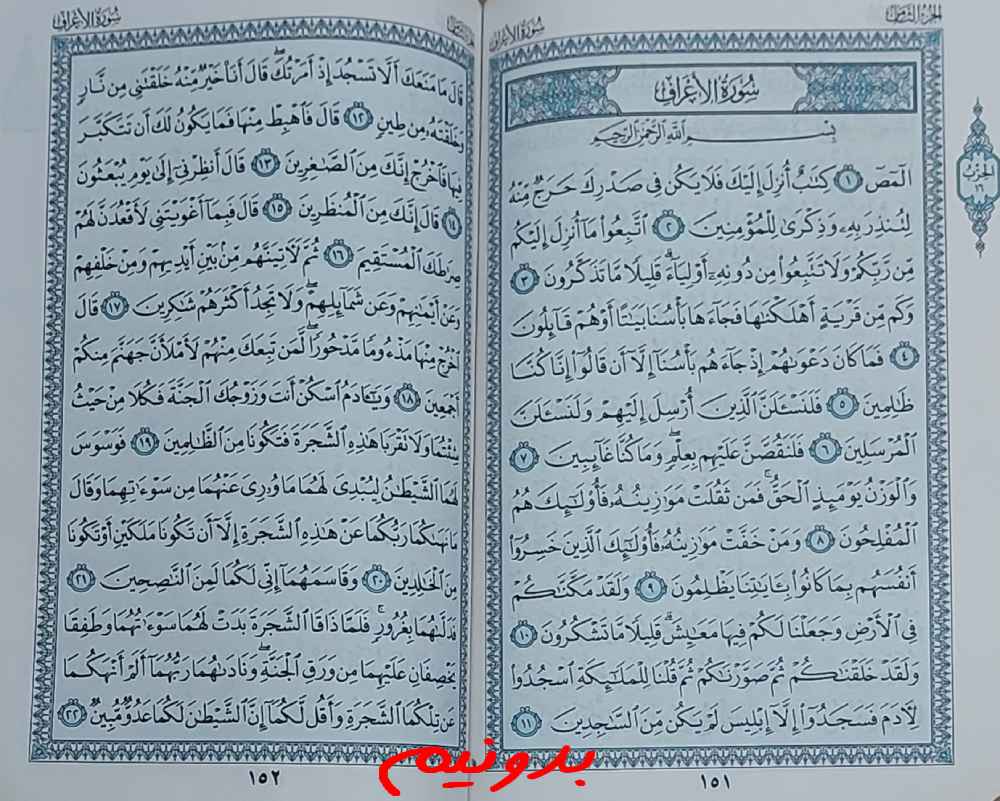 الجزء الثامن
سورة الأعراف
سُورَةُ الأَعْرَافِ
بِسْمِ ٱللَّهِ ٱلرَّحْمَٰنِ ٱلرَّحِيمِ
الٓمٓصٓ ١ كِتَٰبٌ أُنزِلَ إِلَيْكَ فَلَا يَكُن فِى صَدْرِكَ حَرَجٌ مِّنْهُ
لِتُنذِرَ بِهِۦ وَذِكْرَىٰ لِلْمُؤْمِنِينَ ٢ ٱتَّبِعُوا۟ مَآ أُنزِلَ إِلَيْكُم
مِّن رَّبِّكُمْ وَلَا تَتَّبِعُوا۟ مِن دُونِهِۦٓ أَوْلِيَآءَ ۗ قَلِيلًا مَّا تَذَكَّرُونَ ٣
وَكَم مِّن قَرْيَةٍ أَهْلَكْنَٰهَا فَجَآءَهَا بَأْسُنَا بَيَٰتًا أَوْ هُمْ قَآئِلُونَ
٤ فَمَا كَانَ دَعْوَىٰهُمْ إِذْ جَآءَهُم بَأْسُنَآ إِلَّآ أَن قَالُوٓا۟ إِنَّا كُنَّا
ظَٰلِمِينَ ٥ فَلَنَسْـَٔلَنَّ ٱلَّذِينَ أُرْسِلَ إِلَيْهِمْ وَلَنَسْـَٔلَنَّ
ٱلْمُرْسَلِينَ ٦ فَلَنَقُصَّنَّ عَلَيْهِم بِعِلْمٍ ۖ وَمَا كُنَّا غَآئِبِينَ ٧
وَٱلْوَزْنُ يَوْمَئِذٍ ٱلْحَقُّ ۚ فَمَن ثَقُلَتْ مَوَٰزِينُهُۥ فَأُو۟لَٰٓئِكَ هُمُ
ٱلْمُفْلِحُونَ ٨ وَمَنْ خَفَّتْ مَوَٰزِينُهُۥ فَأُو۟لَٰٓئِكَ ٱلَّذِينَ خَسِرُوٓا۟
أَنفُسَهُم بِمَا كَانُوا۟ بِـَٔايَٰتِنَا يَظْلِمُونَ ٩ وَلَقَدْ مَكَّنَّٰكُمْ
فِى ٱلْأَرْضِ وَجَعَلْنَا لَكُمْ فِيهَا مَعَٰيِشَ ۗ قَلِيلًا مَّا تَشْكُرُونَ ١٠
وَلَقَدْ خَلَقْنَٰكُمْ ثُمَّ صَوَّرْنَٰكُمْ ثُمَّ قُلْنَا لِلْمَلَٰٓئِكَةِ ٱسْجُدُوا۟
لِـَٔادَمَ فَسَجَدُوٓا۟ إِلَّآ إِبْلِيسَ لَمْ يَكُن مِّنَ ٱلسَّٰجِدِينَ ١١
١٥١
الحزب
١٦
سورة الأعراف
قَالَ مَا مَنَعَكَ أَلَّا تَسْجُدَ إِذْ أَمَرْتُكَ ۖ قَالَ أَنَا۠ خَيْرٌ مِّنْهُ خَلَقْتَنِى مِن نَّارٍ
وَخَلَقْتَهُۥ مِن طِينٍ ١٢ قَالَ فَٱهْبِطْ مِنْهَا فَمَا يَكُونُ لَكَ أَن تَتَكَبَّرَ
فِيهَا فَٱخْرُجْ إِنَّكَ مِنَ ٱلصَّٰغِرِينَ ١٣ قَالَ أَنظِرْنِىٓ إِلَىٰ يَوْمِ يُبْعَثُونَ
١٤ قَالَ إِنَّكَ مِنَ ٱلْمُنظَرِينَ ١٥ قَالَ فَبِمَآ أَغْوَيْتَنِى لَأَقْعُدَنَّ لَهُمْ
صِرَٰطَكَ ٱلْمُسْتَقِيمَ ١٦ ثُمَّ لَـَٔاتِيَنَّهُم مِّنۢ بَيْنِ أَيْدِيهِمْ وَمِنْ خَلْفِهِمْ
وَعَنْ أَيْمَٰنِهِمْ وَعَن شَمَآئِلِهِمْ ۖ وَلَا تَجِدُ أَكْثَرَهُمْ شَٰكِرِينَ ١٧ قَالَ
ٱخْرُجْ مِنْهَا مَذْءُومًا مَّدْحُورًا ۖ لَّمَن تَبِعَكَ مِنْهُمْ لَأَمْلَأَنَّ جَهَنَّمَ مِنكُمْ
أَجْمَعِينَ ١٨ وَيَٰٓـَٔادَمُ ٱسْكُنْ أَنتَ وَزَوْجُكَ ٱلْجَنَّةَ فَكُلَا مِنْ حَيْثُ
شِئْتُمَا وَلَا تَقْرَبَا هَٰذِهِ ٱلشَّجَرَةَ فَتَكُونَا مِنَ ٱلظَّٰلِمِينَ ١٩ فَوَسْوَسَ
لَهُمَا ٱلشَّيْطَٰنُ لِيُبْدِىَ لَهُمَا مَا وُۥرِىَ عَنْهُمَا مِن سَوْءَٰتِهِمَا وَقَالَ
مَا نَهَىٰكُمَا رَبُّكُمَا عَنْ هَٰذِهِ ٱلشَّجَرَةِ إِلَّآ أَن تَكُونَا مَلَكَيْنِ أَوْ تَكُونَا
مِنَ ٱلْخَٰلِدِينَ ٢٠ وَقَاسَمَهُمَآ إِنِّى لَكُمَا لَمِنَ ٱلنَّٰصِحِينَ ٢١
فَدَلَّىٰهُمَا بِغُرُورٍ ۚ فَلَمَّا ذَاقَا ٱلشَّجَرَةَ بَدَتْ لَهُمَا سَوْءَٰتُهُمَا وَطَفِقَا
يَخْصِفَانِ عَلَيْهِمَا مِن وَرَقِ ٱلْجَنَّةِ ۖ وَنَادَىٰهُمَا رَبُّهُمَآ أَلَمْ أَنْهَكُمَا
عَن تِلْكُمَا ٱلشَّجَرَةِ وَأَقُل لَّكُمَآ إِنَّ ٱلشَّيْطَٰنَ لَكُمَا عَدُوٌّ مُّبِينٌ ٢٢
١٥٢
بدونیم